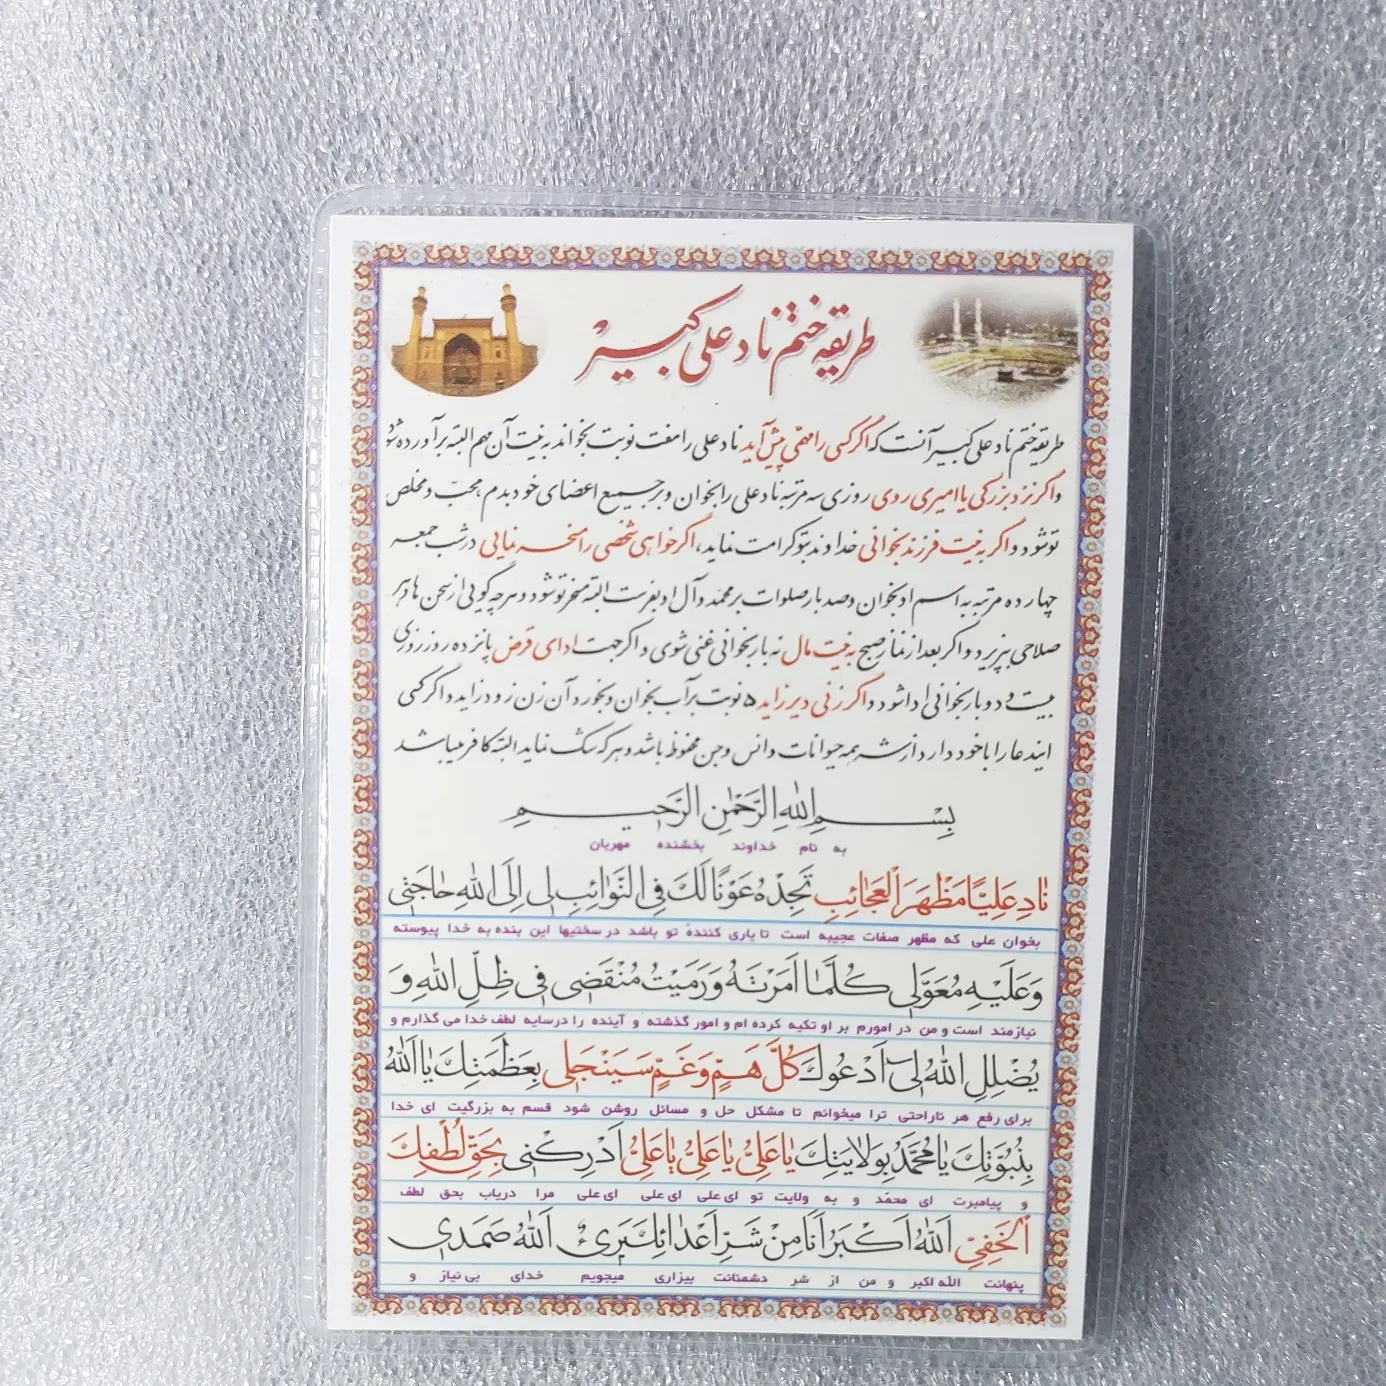 طریقه ختم ناد علی کبیر
طریقه ختم ناد علی کبیر آنست که اگر کسی را مهمی پیش آید ناد علی را هفت نوبت بخواند به نیت آن مهم البته برآورده شود
و اگر نزد بزرگی یا امیری روی روزی سه مرتبه ناد علی را بخوان و بر جمیع اعضای خود بدم، محبّ و مخلص
تو شود و اگر به نیت فرزند بخوانی خداوند بتو کرامت نماید، اگر خواهی شخصی را مسخر نمایی در شب جمعه
چهارده مرتبه به اسم او بخوان و صد بار صلوات بر محمد و آل او بفرست البته مسخر تو شود و هر چه گویی از سخن ها و هر
صلاحی بپذیرد و اگر بعد از نماز صبح به نیت مال نه بار بخوانی غنی شوی و اگر جهت ادای قرض پانزده روز روزی
بیست و دو بار بخوانی ادا شود و اگر زنی دیر زاید ۵ نوبت بر آب بخوان و بخورد آن زن زود زاید و اگر کسی
این دعا را با خود دارد از شر همه حیوانات و انس و جن محفوظ باشد و هر که شک نماید البته کافر میباشد
بِسْمِ اللهِ الرَّحْمٰنِ الرَّحیمِ
به نام خداوند بخشنده مهربان
نادِ عَلِیًّا مَظْهَرَ الْعَجائِبِ تَجِدْهُ عَوْنًا لَكَ فِی النَّوائِبِ لی اِلَی اللهِ حاجَتی
بخوان علی که مظهر صفات عجیبه است تا یاری کنندهٔ تو باشد در سختیها این بنده به خدا پیوسته
وَ عَلَیْهِ مُعَوَّلی کُلَّما اَمَرْتَهُ وَ رَمَیْتُ مُنْقَضی فی ظِلِّ اللهِ وَ
نیازمند است و من در امورم بر او تکیه کرده ام و امور گذشته و آینده را درسایه لطف خدا می گذارم و
یُضْلِلِ اللهُ لی اَدْعُوكَ كُلَّ هَمٍّ وَ غَمٍّ سَیَنْجَلی بِعَظَمَتِكَ یا اَللهُ
برای رفع هر ناراحتی ترا میخوانم تا مشکل حل و مسائل روشن شود قسم به بزرگیت ای خدا
بِنُبُوَّتِكَ یا مُحَمَّدُ بِوِلایَتِكَ یا عَلِیُّ یا عَلِیُّ یا عَلِیُّ اَدْرِکْنی بِحَقِّ لُطْفِكَ
و پیامبرت ای محمّد و به ولایت تو ای علی ای علی ای علی مرا دریاب بحق لطف
الْخَفِیِّ اَللهُ اَکْبَرُ اَنَا مِنْ شَرِّ اَعْدائِكَ بَریءٌ اَللهُ صَمَدی
پنهانت الله اکبر و من از شر دشمنانت بیزاری میجویم خدای بی نیاز و